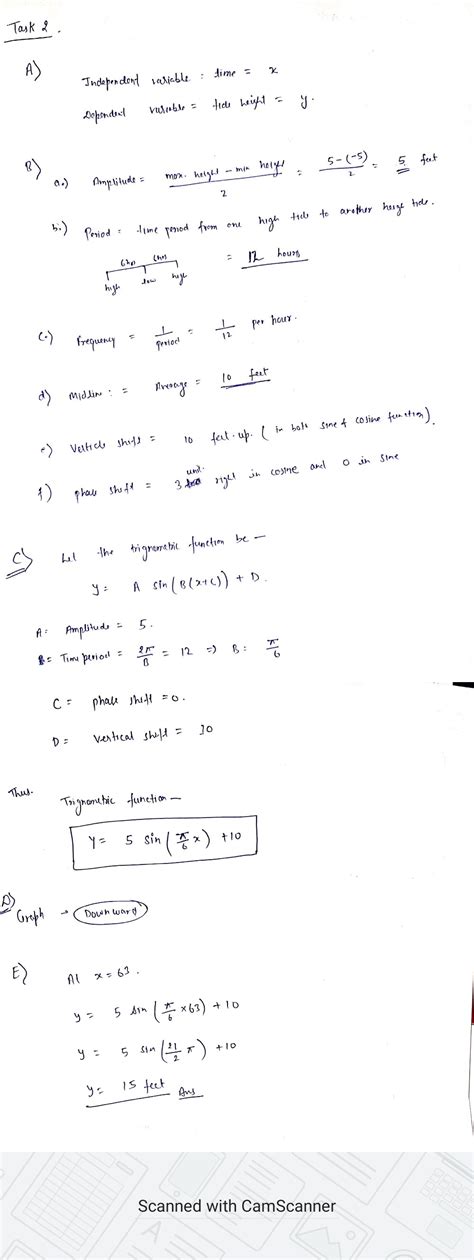 Task 2.
A) Independent variable : time = x
Dependent variable = tide height = y.
B) a.) Amplitude = max. height - min height / 2 = 5-(-5) / 2 = 5 feet
b.) Period = time period from one high tide to another heigh tide.
6hr 6hr
high low high = 12 hours
c.) Frequency = 1/period = 1/12 per hour.
d) Midline : = Average = 10 feet
e) Verticle shift = 10 feet up. (in both sine & cosine function).
f) phase shift = 3 unit right in cosine and 0 in sine
C) Let the trignometric function be —
y = A sin(B(x+C)) + D.
A = Amplitude = 5.
B = Time period = 2π/B = 12 ⇒ B = π/6
C = phase shift = 0.
D = vertical shift = 10
Thus.
Trignometric function —
y = 5 sin(π/6 x) + 10
D) Graph → Downward
E) At x = 63.
y = 5 sin(π/6 × 63) + 10
y = 5 sin(21/2 π) + 10
y = 15 feet Ans
Scanned with CamScanner